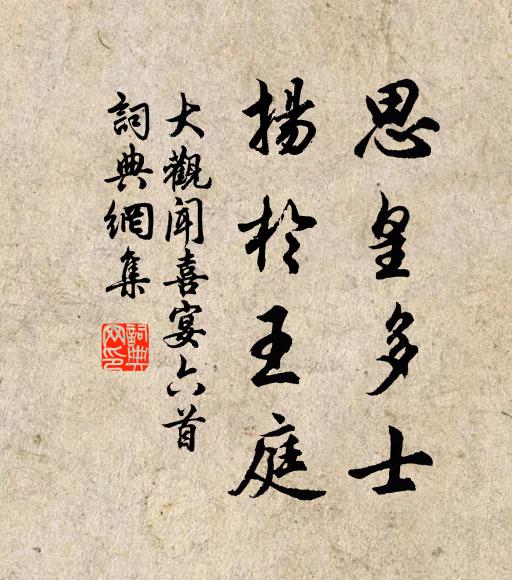 思皇多士
揚於王庭
大觀聞喜宴六首
詞典網集
詞典網印